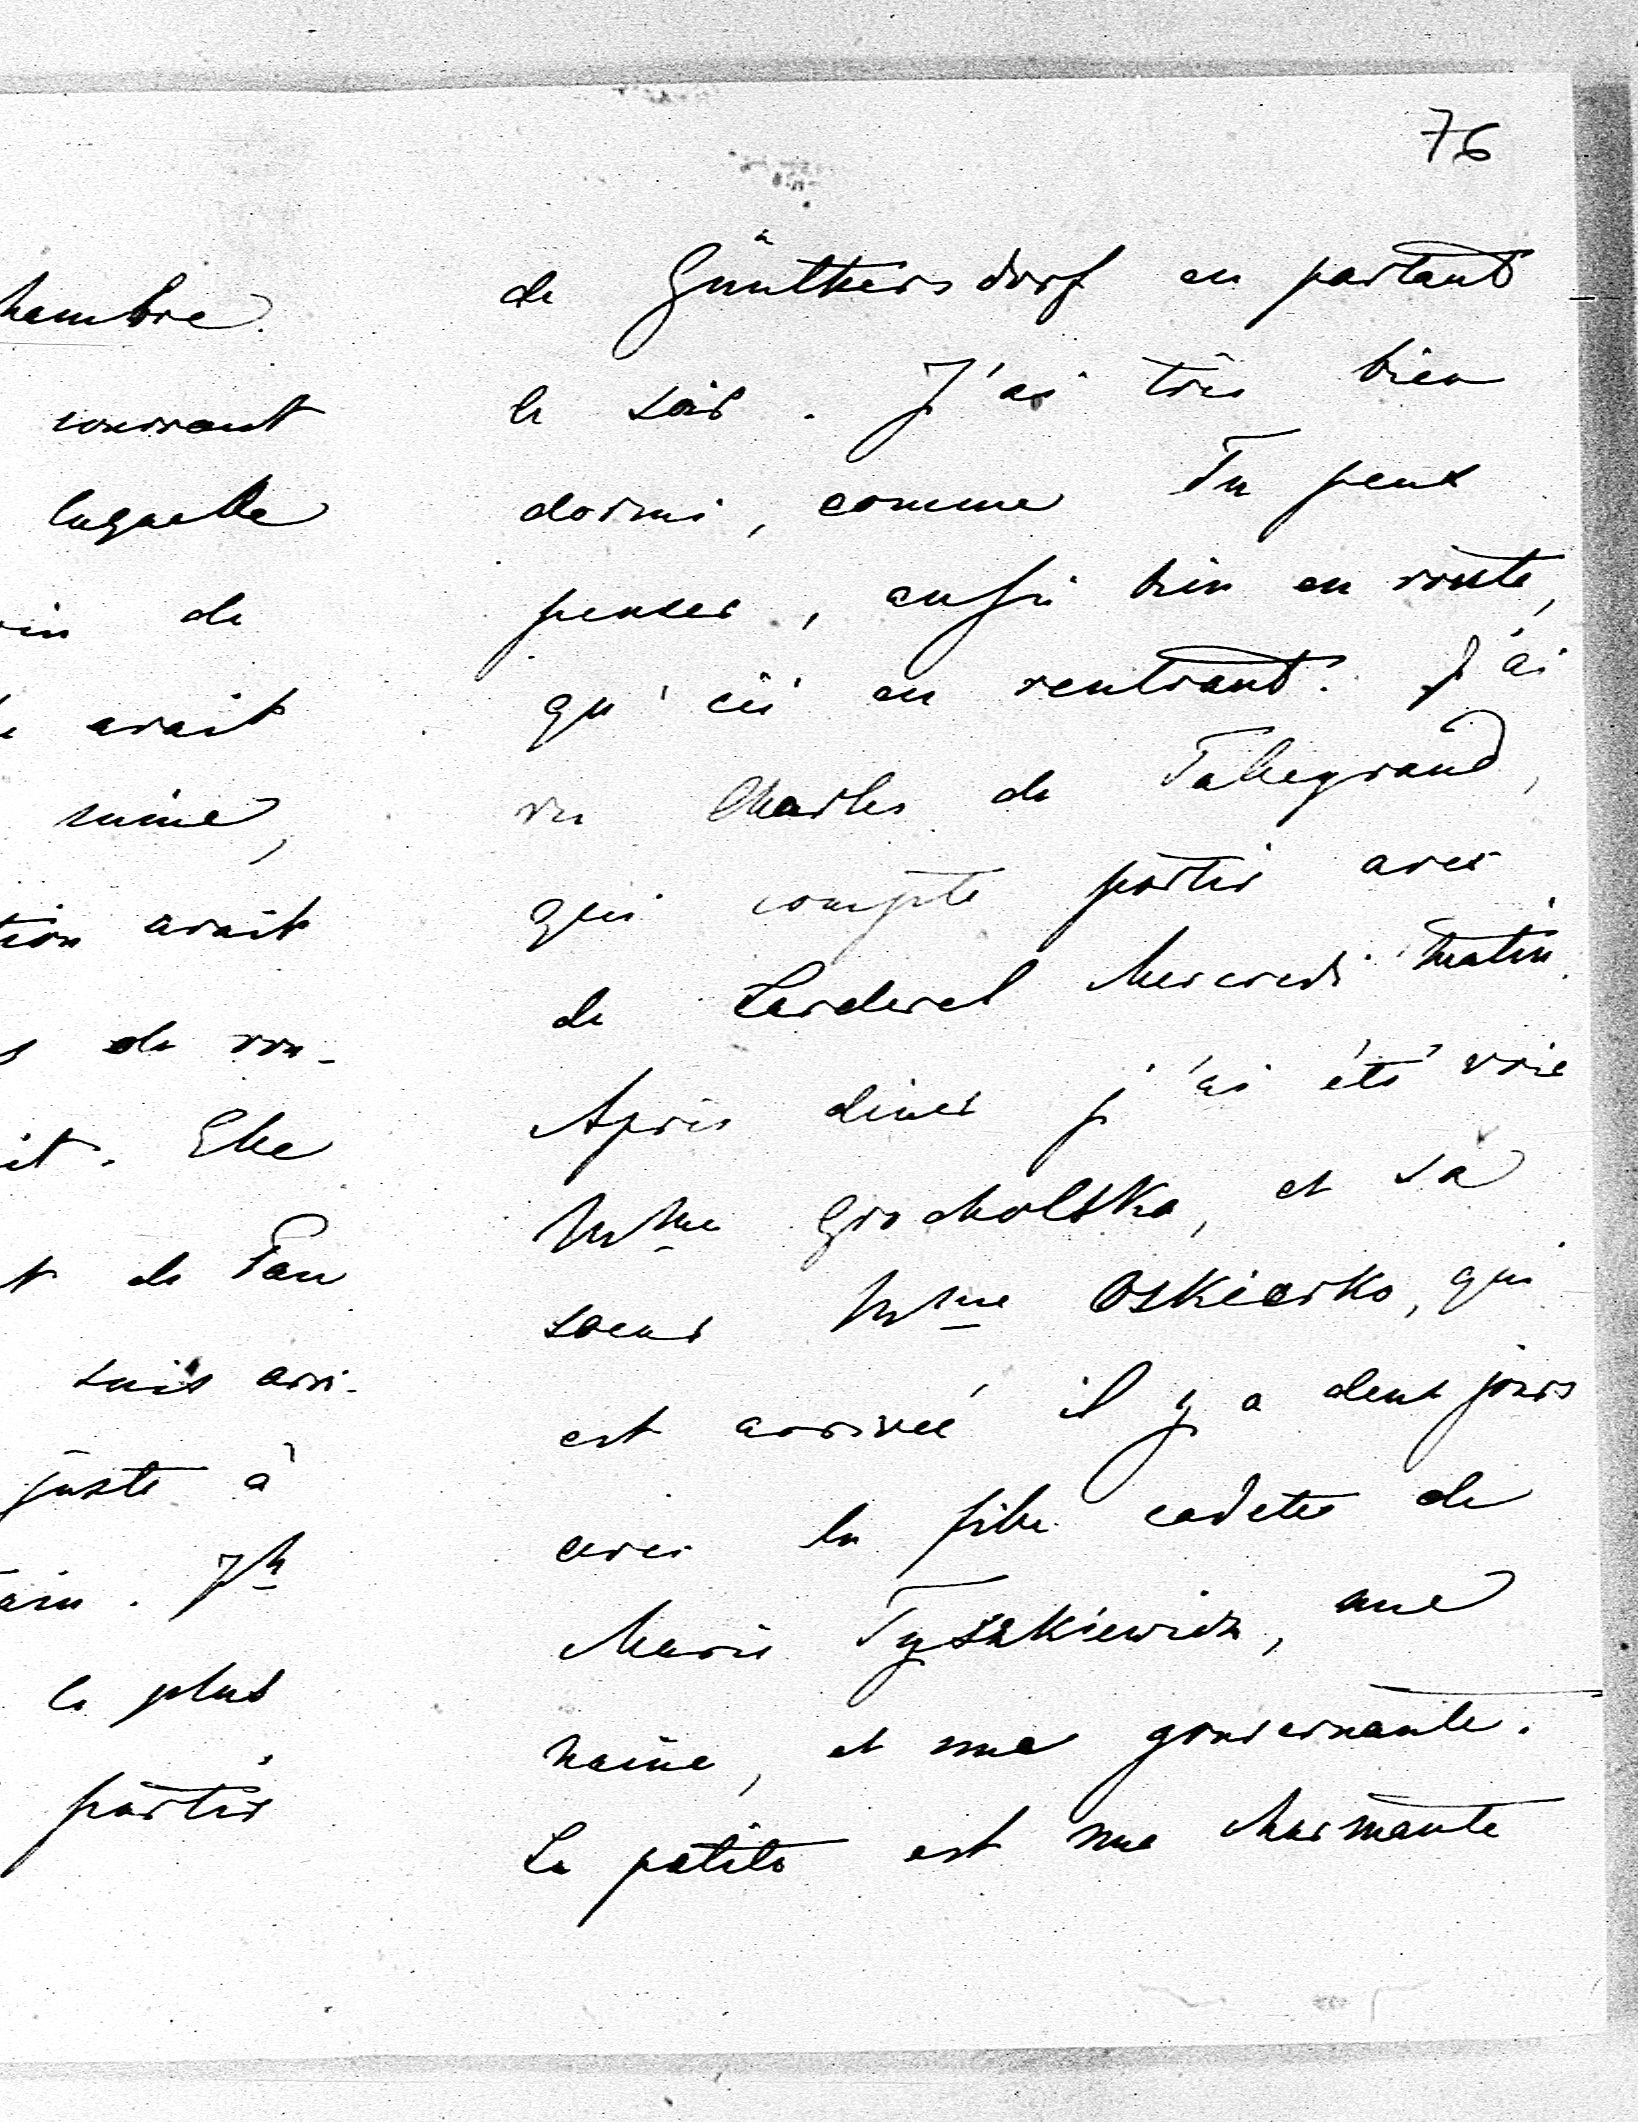 76
hambre.
courrant
laquelle
de
avait
ruiné,
tion avait
de rou-
it. Elle
t de Pau
suis arri-
juste à
. 7h
le plus
partir
de Günthersdorf en partant
le soir. J'ai très bien
dormi, comme Tu peux
penser, aussi bien en route,
qu'ici en rentrant. J'ai
vu Charles de Talleyrand,
qui compte partir avec
de Larderel Mercredi matin.
Après diner j'ai été voir
Mme Grocholska, et sa
soeur Mme Oskierko, qui
est arrivée il y a deux jours
avec la fille cadette de
Marie Tyszkiewicz, une
naine, et une gouvernante.
La petite est une charmante